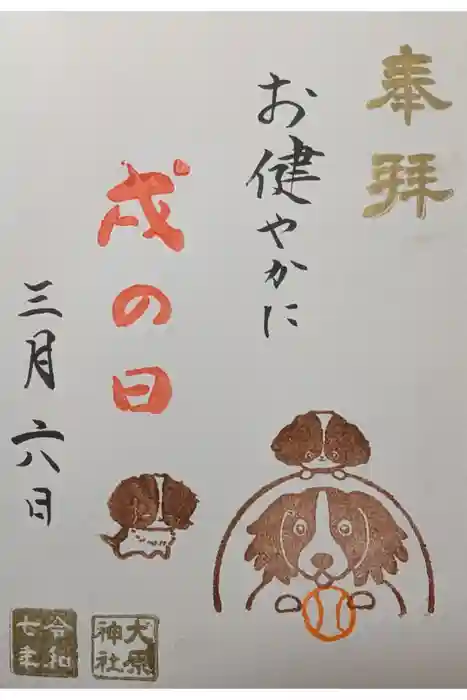 奉拝
お健やかに
戌の日
三月六日
大原神社
令和七年